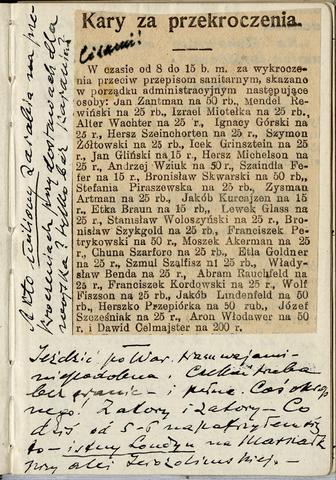 Kary za przekroczenia.
Cisami!
W czasie od 8 do 15 b. m. za wykrocze-
nia przeciw przepisom sanitarnym, skazano
w porządku administracyjnym następujące
osoby: Jan Zantman na 50 rb., Mendel Re-
wiński na 25 r., Izrael Miotełka na 25 rb.,
Alter Wachter na 25 r., Ignacy Górski na
25 r., Hersz Szeinchorten na 25 r., Szymon
Żółtowski na 25 r., Icek Grinsztein na 25
r., Jan Gliński na 15 r., Hersz Michelson na
25 r., Andrzej Wziuk na 50 r., Szaindla Fe-
fer na 15 r., Bronisław Skwarski na 50 rb.,
Stefania Piraszewska na 25 rb., Zysman
Artman na 25 rb., Jakób Kurcajzen na
15 r., Etka Braun na 15 rb., Lewek Glass na
25 r., Stanisław Wołoszyński na 25 r., Bro-
nisław Szykgold na 25 rb., Franciszek Pe-
trykowski na 50 r., Moszek Akerman na 25
r., Chuna Szarforc na 25 rb., Etla Goldner
na 25 rb., Szmul Szalfisz nt 25 rb., Włady-
sław Benda na 25 r., Abram Rauchfeld na
25 r., Franciszek Kordowski na 25 r., Wolf
Fiszson na 25 rb., Jakób Lindenfeld na 50
rb., Herszko Przepiórka na 50 rub., Józef
Szcześniak na 25 r., Aron Włodawer na 50
r. i Dawid Celmajster na 200 r.
A oto miliony zarabia na
przy dostawach dla
wojska i tylko bez
Jeździć po War. tramwajami-
niepodobna. Czekać trzeba
bez granic - i pełne. Coś okrop-
nego. Zatory i zatory - Co
dziś od 5-6
to - istny Londyn na Marszałk
przy alei Jerozolimskiej.-